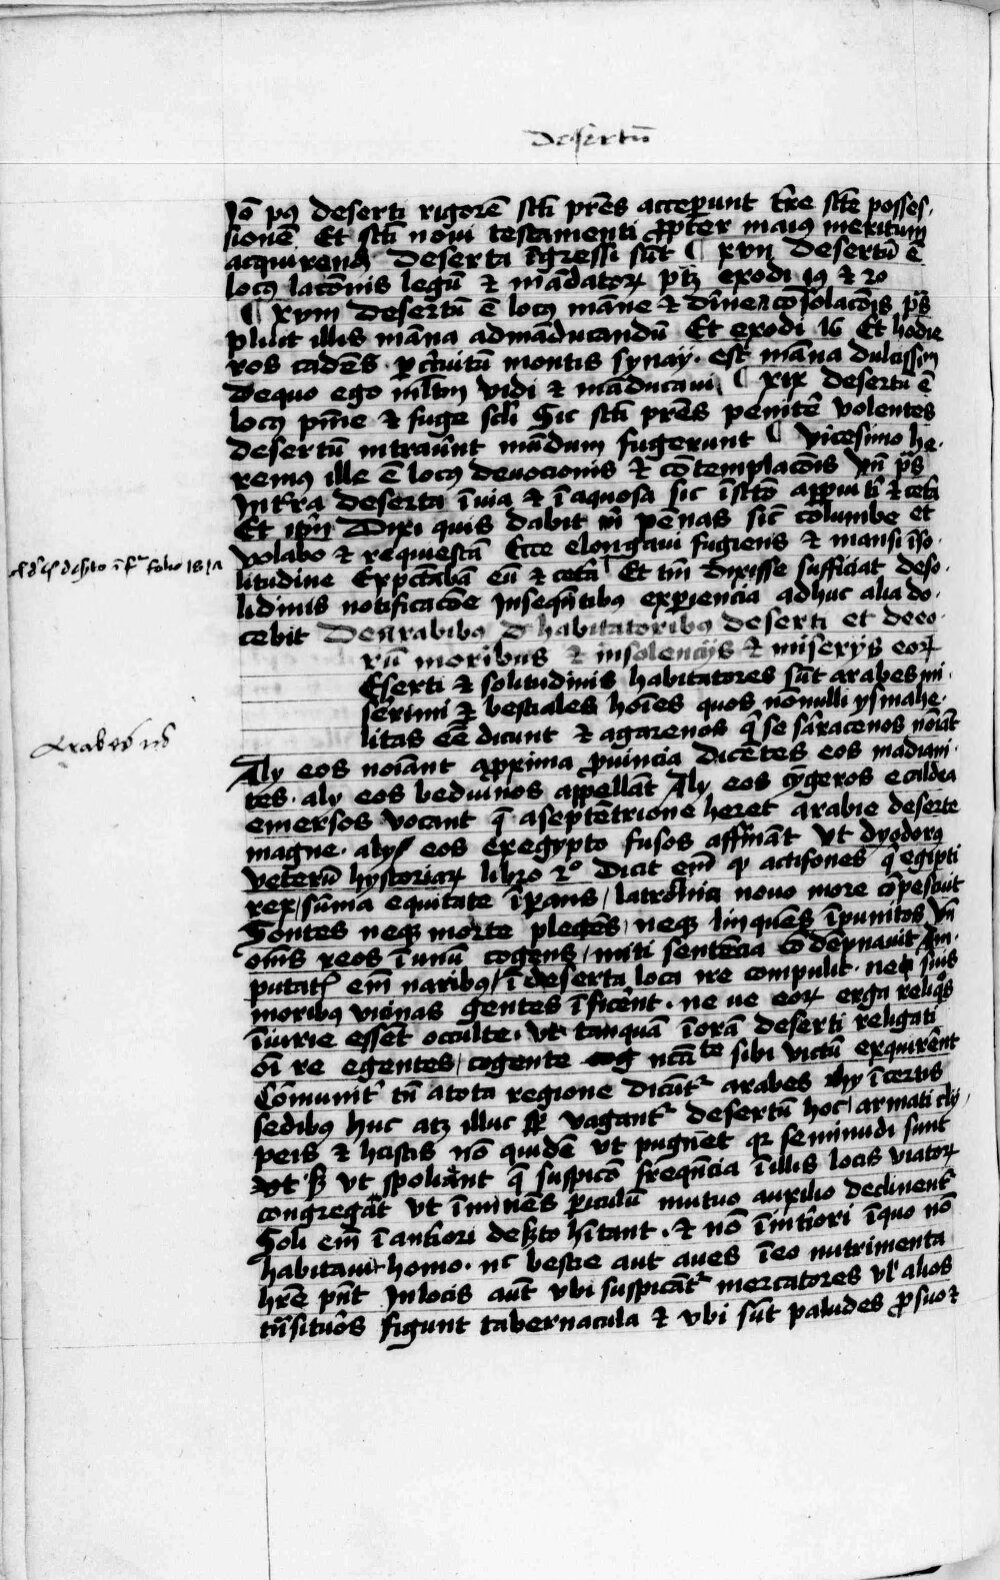 Desertū
Iō pꝰ deserti rigorē scti prēs acceperunt tr̄re scte posses.
sionē Et scti noui testamenti ꝓpter maius meritum
acquirendū deserta īgressi sūt ¶ xvii desertū ē
locꝰ lacōnis legū & mādatoꝝ ptꝫ exodi 19 & 20
¶ xviii desertū ē locꝰ māne & dīne cōsolacōis pˢ
pluit illis māna admāducandū Et exodi 16 Et hodie
ros cadēs ꝑ circuitū montis synay. est māna dulcissim
dequo ego mltm vidi & māducaui ¶ xix desertū ē
locꝰ pnīe & fuge scli Sic scti prēs penitē volentes
desertū intraūnt mūdum fugerunt ¶ vicesimo he.
remꝰ ille ē locꝰ deuocionis & cōtemplacōis vn̄ pˢ
In tr̄ra deserta īuia & īaquosa sic īscto apparui ti & cetā
Et ipm̄ Dixi quis dabit m̄ pēnas sic̄ columbe et
volabo & requiescā Ecce elongaui fugiens & mansi īso.
litudine Expctabā eū & cetā Et tm̄ dixisse sufficiat deso.
lidinis notificacōe Inseqn̄tibꝰ experiencia adhuc alia do.
cebit De arabibꝰ & habitatoribꝰ deserti et de eo.
rū moribus & insolencijs & miserijs eoꝝ
Eserti & solitudinis habitatores sūt arabes mi.
serrimi & bestiales hoīes quos nōnulli ysmahe.
litas eē dicunt & agarenos q̄ se saracenos noīāt
Alij eos noīant a ꝓxima ꝓuincia dicētes eos madiani.
tes. alij eos beduinos appellāt Alij eos cyngeros e caldea
emersos vocant q̄ aseptētrione heret arabie deserte
magne. alij eos exegypto fusos affirmāt vt dyodorꝰ
veterū hystoriaꝝ libro 2º dicit em̄ ꝙ actisanes q̄ egipti
rex / sūma equitate īꝑans / latrocīnia nouo more cōpescuit
Sontes neqꝫ morte plectēs / neqꝫ linquēs īpunitos vn̄
omīs reos ī unū cogens / miti sentēcia cōdēpnauit Am.
putatˢ em̄ naribꝰ / ī deserta loca ire compulit. neqꝫ suis
moribꝰ vicinas gentes īficēnt. ne ue eoꝝ erga reliqˢ
īiurie essēt occulte. Vt tanquā ī orā deserti religati
oī re egentes / cogente ncātte sibi victū exquirēnt
Cōmunitˢ tn̄ a tota regione dicūtˢ arabes hij īcertis
sedibꝰ huc atqꝫ illuc sꝑ vagantˢ desertū hoc / armati cly /
peis & hastis nō quidē vt pugnēt qꝛ seminudi sunt
sꝫ vt spoliānt q̄ suspicō freqn̄cia ī illis locis viatoꝝ
congregāt vt īminēs ꝑiculū mutuo auxilio declinentˢ
Soli em̄ ī antiori deserto hītant. & nō ī intiori īquo nō
habitauit homo. nc̄ bestie aut aues ī eo nutrimenta
hrē pn̄t In locis aūt vbi suspicātˢ mercatores vl alios
trn̄situros figunt tabernacula & vbi sūt paludes ꝓ suo &
īfˢ folio 181 a
Arabes vn̄